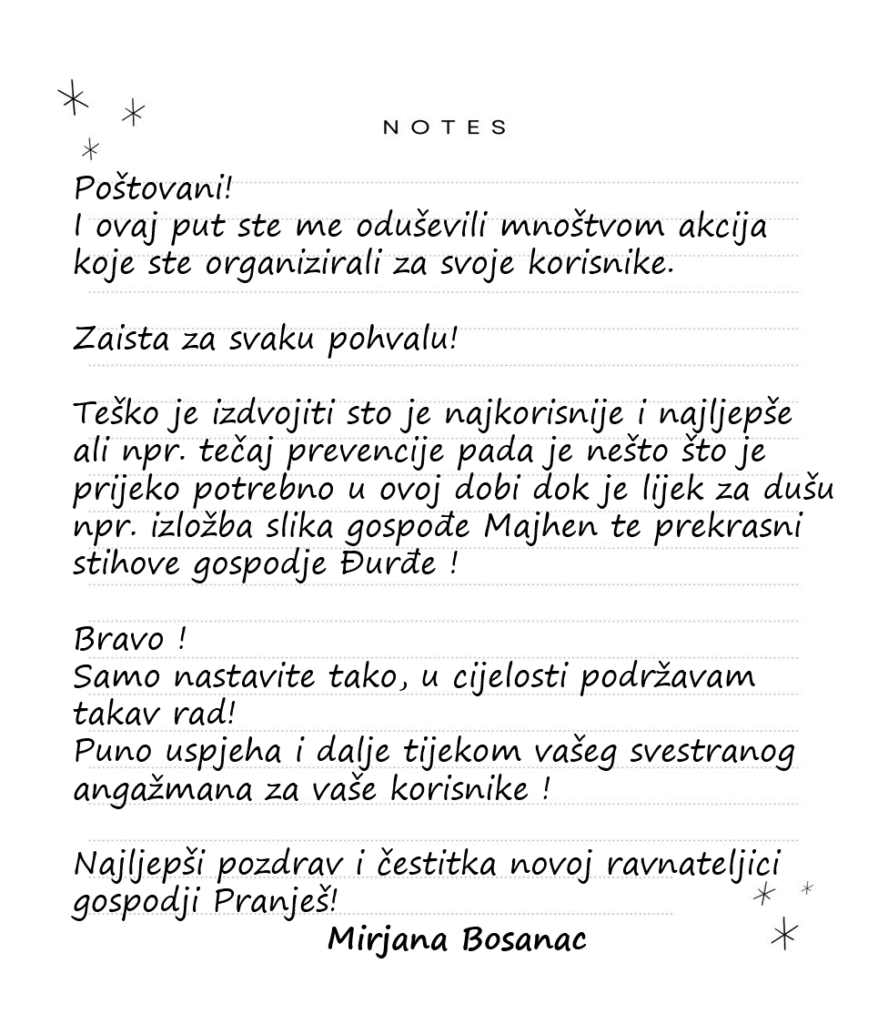 NOTES
Poštovani!
I ovaj put ste me oduševili mnoštvom akcija
koje ste organizirali za svoje korisnike.
Zaista za svaku pohvalu!
Teško je izdvojiti sto je najkorisnije i najljepše
ali npr. tečaj prevencije pada je nešto što je
prijeko potrebno u ovoj dobi dok je lijek za dušu
npr. izložba slika gospođe Majhen te prekrasni
stihove gospodje Đurđe !
Bravo !
Samo nastavite tako, u cijelosti podržavam
takav rad!
Puno uspjeha i dalje tijekom vašeg svestranog
angažmana za vaše korisnike !
Najljepši pozdrav i čestitka novoj ravnateljici
gospodji Pranješ!
Mirjana Bosanac